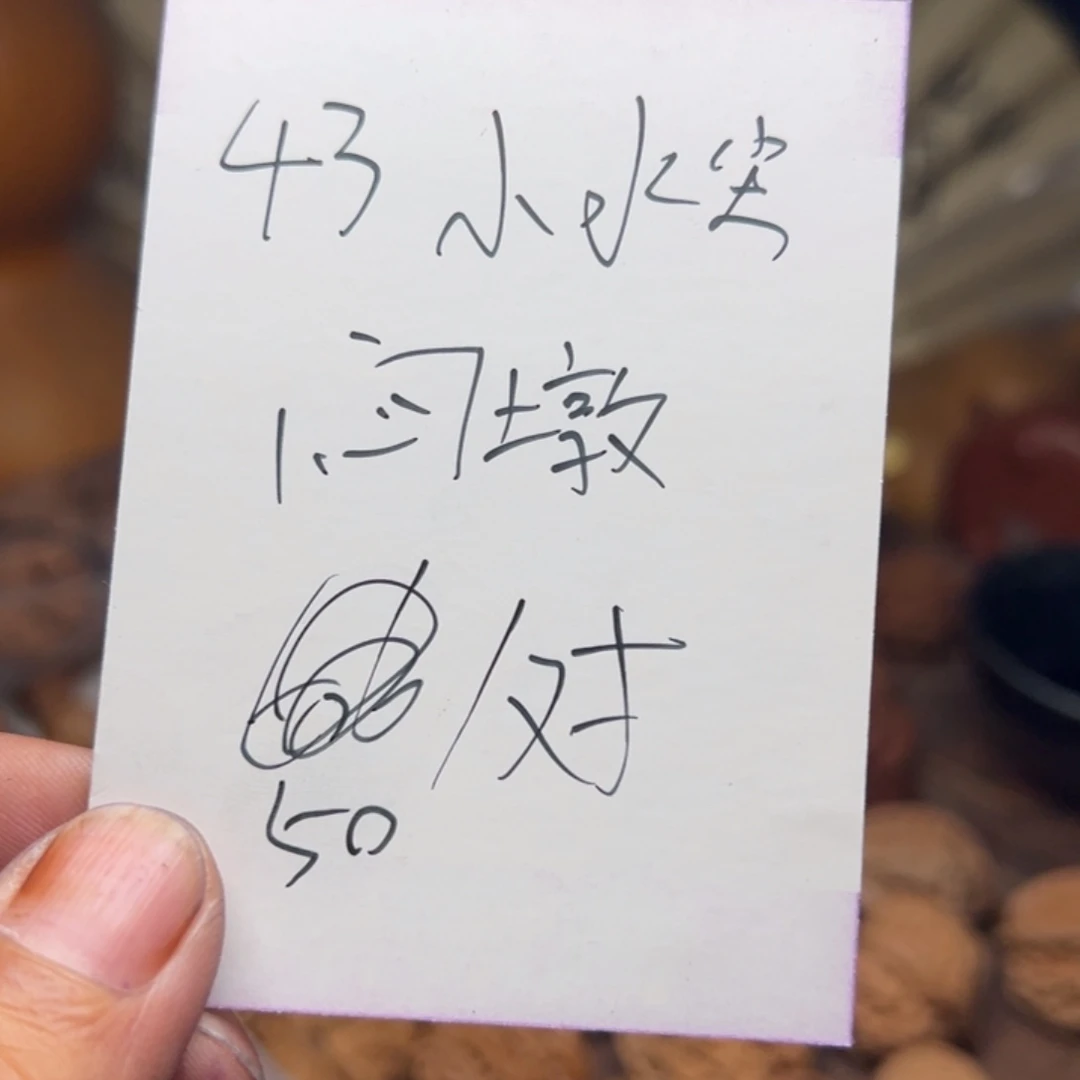 43 小水尖
闷墩
/对
50